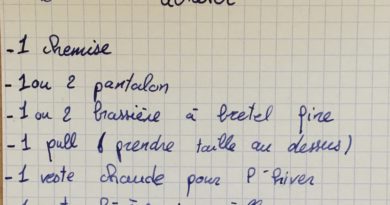 acheter
-1 chemise
-1 ou 2 pantalon
-1 ou 2 brassière à bretel fine
-1 pull (prendre taille au dessus)
-1 veste chaude pour l'hiver